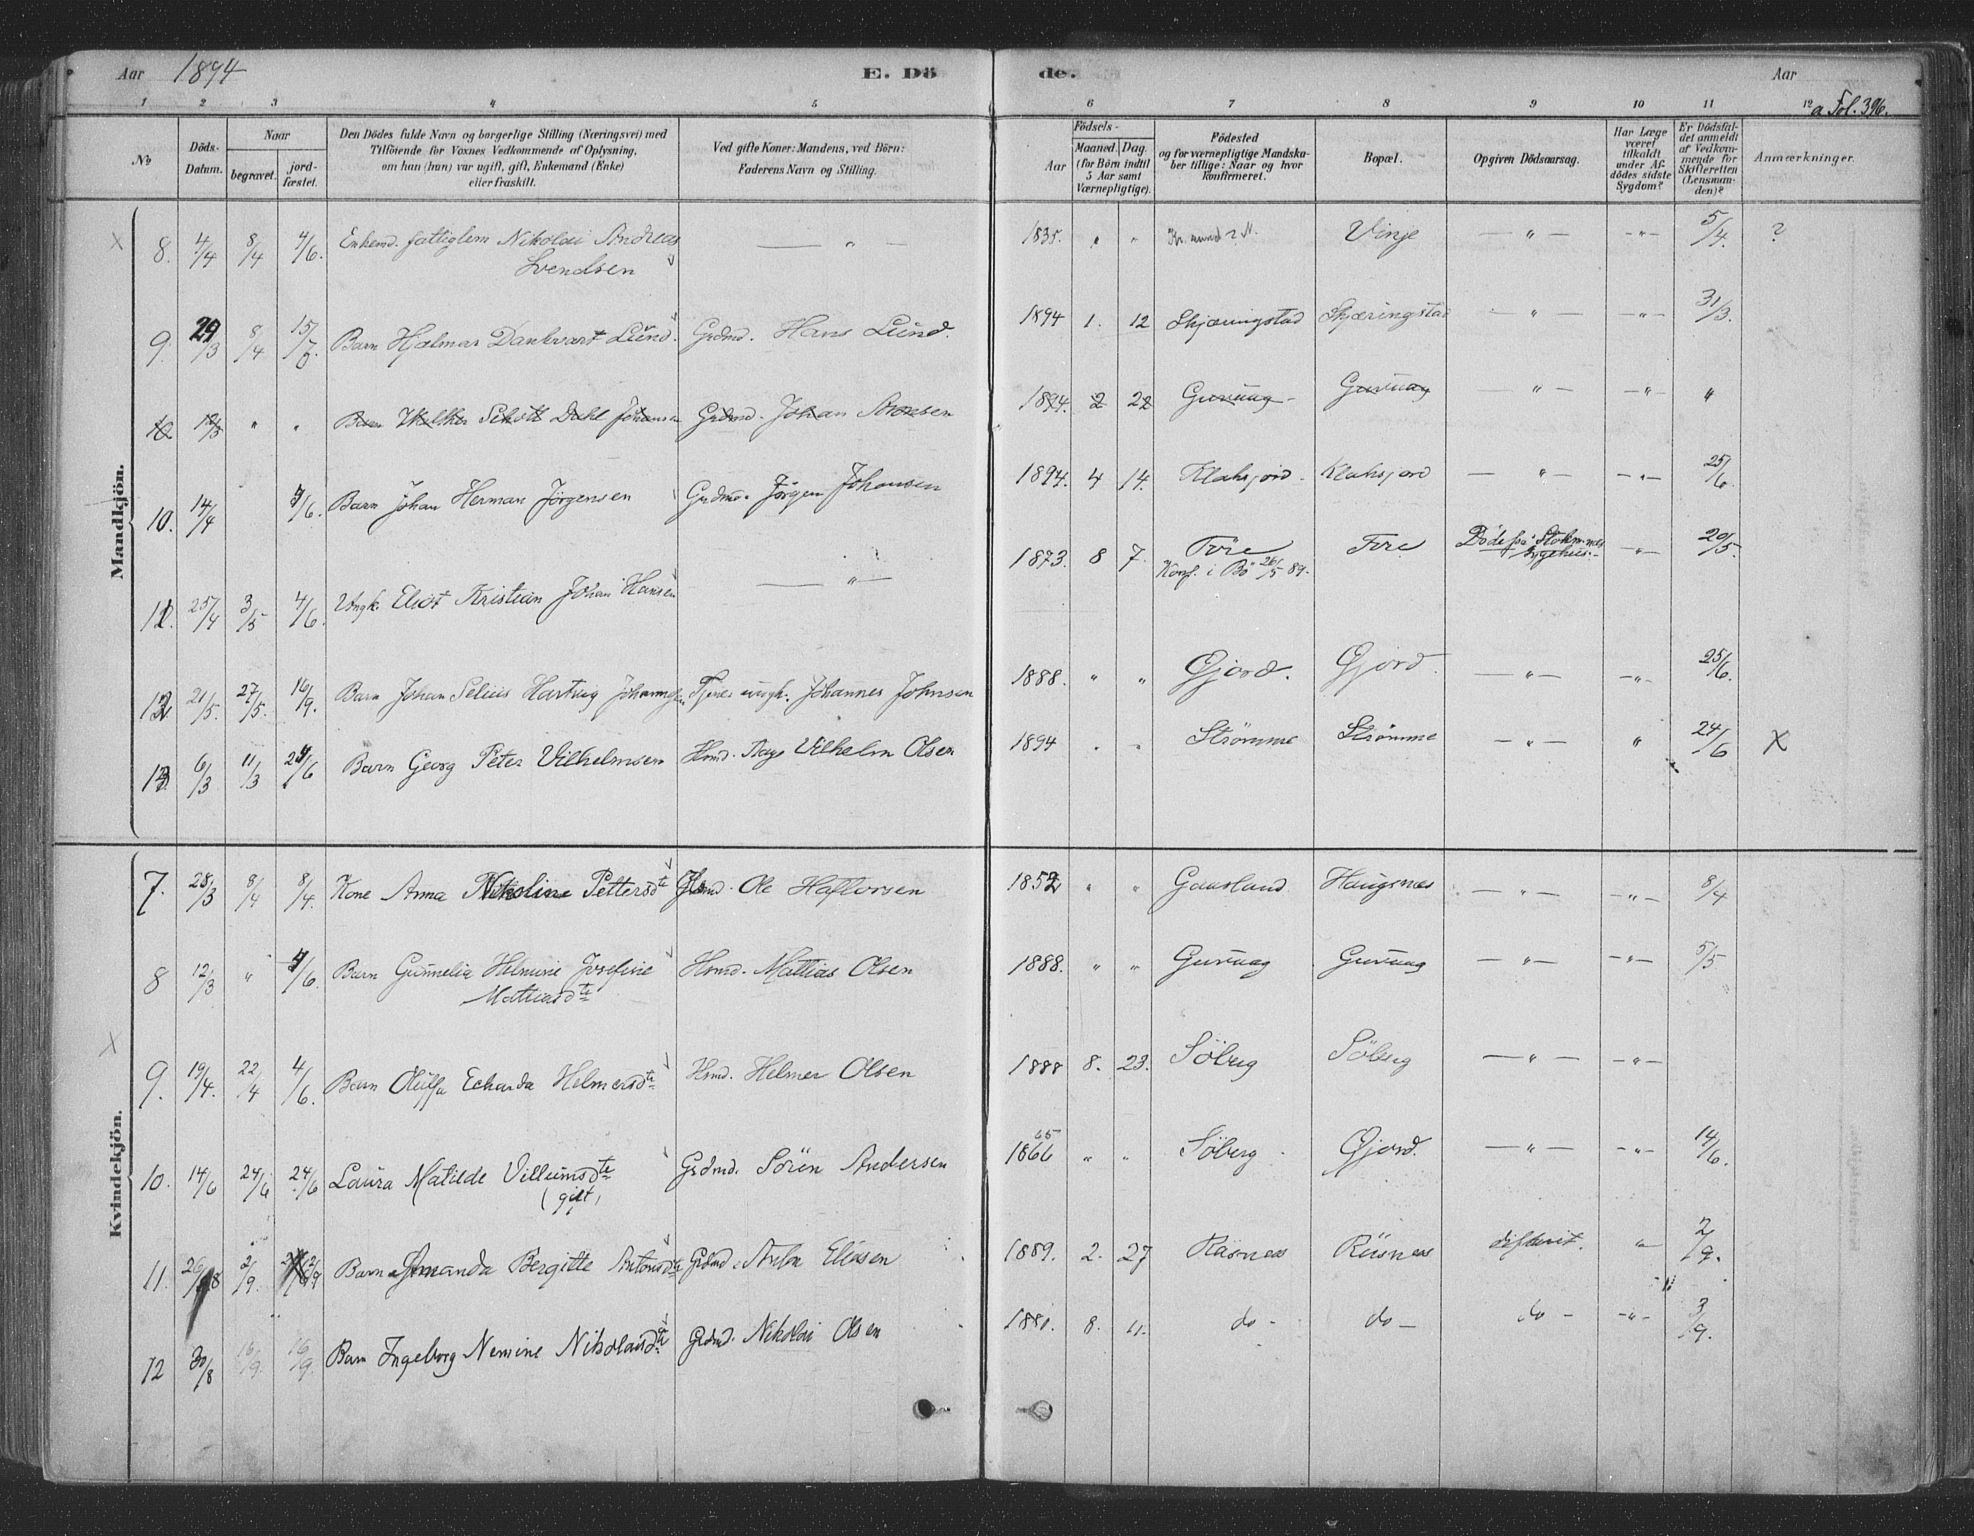 Aar 1894 E. Dö de. Aar
1 2 3 4 5 6 7 8 9 10 11 12
a Fol. 396.
No
Döds-Datum.
Naar
begravet.
jord-fæstet.
Den Dödes fulde Navn og borgerlige Stilling (Næringsvei) med
Tilföiende for Voxnes Vedkommende af Oplysning,
om han (hun) var ugift, gift, Enkemand (Enke)
eller fraskilt.
Ved gifte Koner: Mandens, ved Börn:
Faderens Navn og Stilling.
Födsels-
Aar
Maaned. Dag.
(for Börn indtil
5 Aar samt
Værnepligtige).
Födested
og for værnepligtige Mandska-
ber tillige: Naar og hvor
konfirmeret.
Bopæl.
Opgiven Dödsaarsag.
Har Læge
været
tilkaldt
under Af-
dödes sidste
Sygdom?
Er Dödsfal-
det anmeldt
af Vedkom-
mende for
Skifteretten
(Lensman-
den)?
Anmærkninger.
Mandkjön.
8. 4/4 8/4 4/6. Enkemd. fattiglem Nikolai Andreas — " — 1835. " " Vinje — " — - " - 5/4. ?
Svendsen
9. 29/3 8/4 15/7. Barn Hjalmar Dankvart Lund. Grdmd. Hans Lund. 1894 1. 12 Skjæringstad Skjæringstad — " — - " - 31/3.
10 12/3 " " Barn Schøtt Dahl Johansen Grdmd. Johan 1894. 2 22 Guvaag Guvaag — " — - " - "
10. 14/4 4/6. Barn Johan Herman Jörgensen Grdmd. Jörgen Johansen 1894. 4 14. Klaksjord Klaksjord — " — - " - 25/6.
11. 25/4 3/5 4/6. Ungk. Eliot Kristian Johan Hansen — " — 1873. 8 7. Føre Føre Döde paa Stokmnæs - " - 20/5.
Konf. i Bö 26/5 89. Sygehus.
12. 21/5. 27/5. 16/9. Barn Johan Selius Hartvig Johannesen. Tjenes. ungk. Johannes Johnsen 1888. " " Gjord. Gjord. — " — - " - 25/6.
13. 6/3 11/3 24/6 Barn Georg Peter Vilhelmsen Hsmd. Aage Vilhelm Olsen 1894 " " Strömme Strömme — " — " 24/6 X
Kvindekjön.
7. 28/3 8/4 8/4. Kone Anna Nikoline Pettersdtr Hsmd. Ole Haftorsen 1852 " " Gaasland Haugsnæs — " — - " - 8/4
8 12/3 " 4/6 Barn Gunnelia Helmine Josefine Hsmd. Mattias Olsen 1888. " " Guvaag Guvaag — " — - " - 5/5
Mathiasdtr
9. 19/4. 22/4 4/6. Barn Oluffa Echarda Helmersdtr Hsmd. Helmer Olsen 1888 8. 23. Söberg Söberg — " — - " -
10. 14/6 24/6 24/6 Laura Matilde Villumsdtr Grdmd. Sören Andersen 1866 65 " " Söberg Gjord. — " — - " - 14/6.
(gift)
11. 26/8 2/9. 2/9 Barn Amanda Bergitte Antonsdtr Grdmd. Anton Eliasen 1889. 2. 27 Risnæs Risnæs difterit. " 2/9.
12 30/8 16/9. 16/9. Barn Ingeborg Nemine Nikolaisdtr Grdmd. Nikolai Olsen 1881. 8. 11. do - do - do - - " - 3/9.